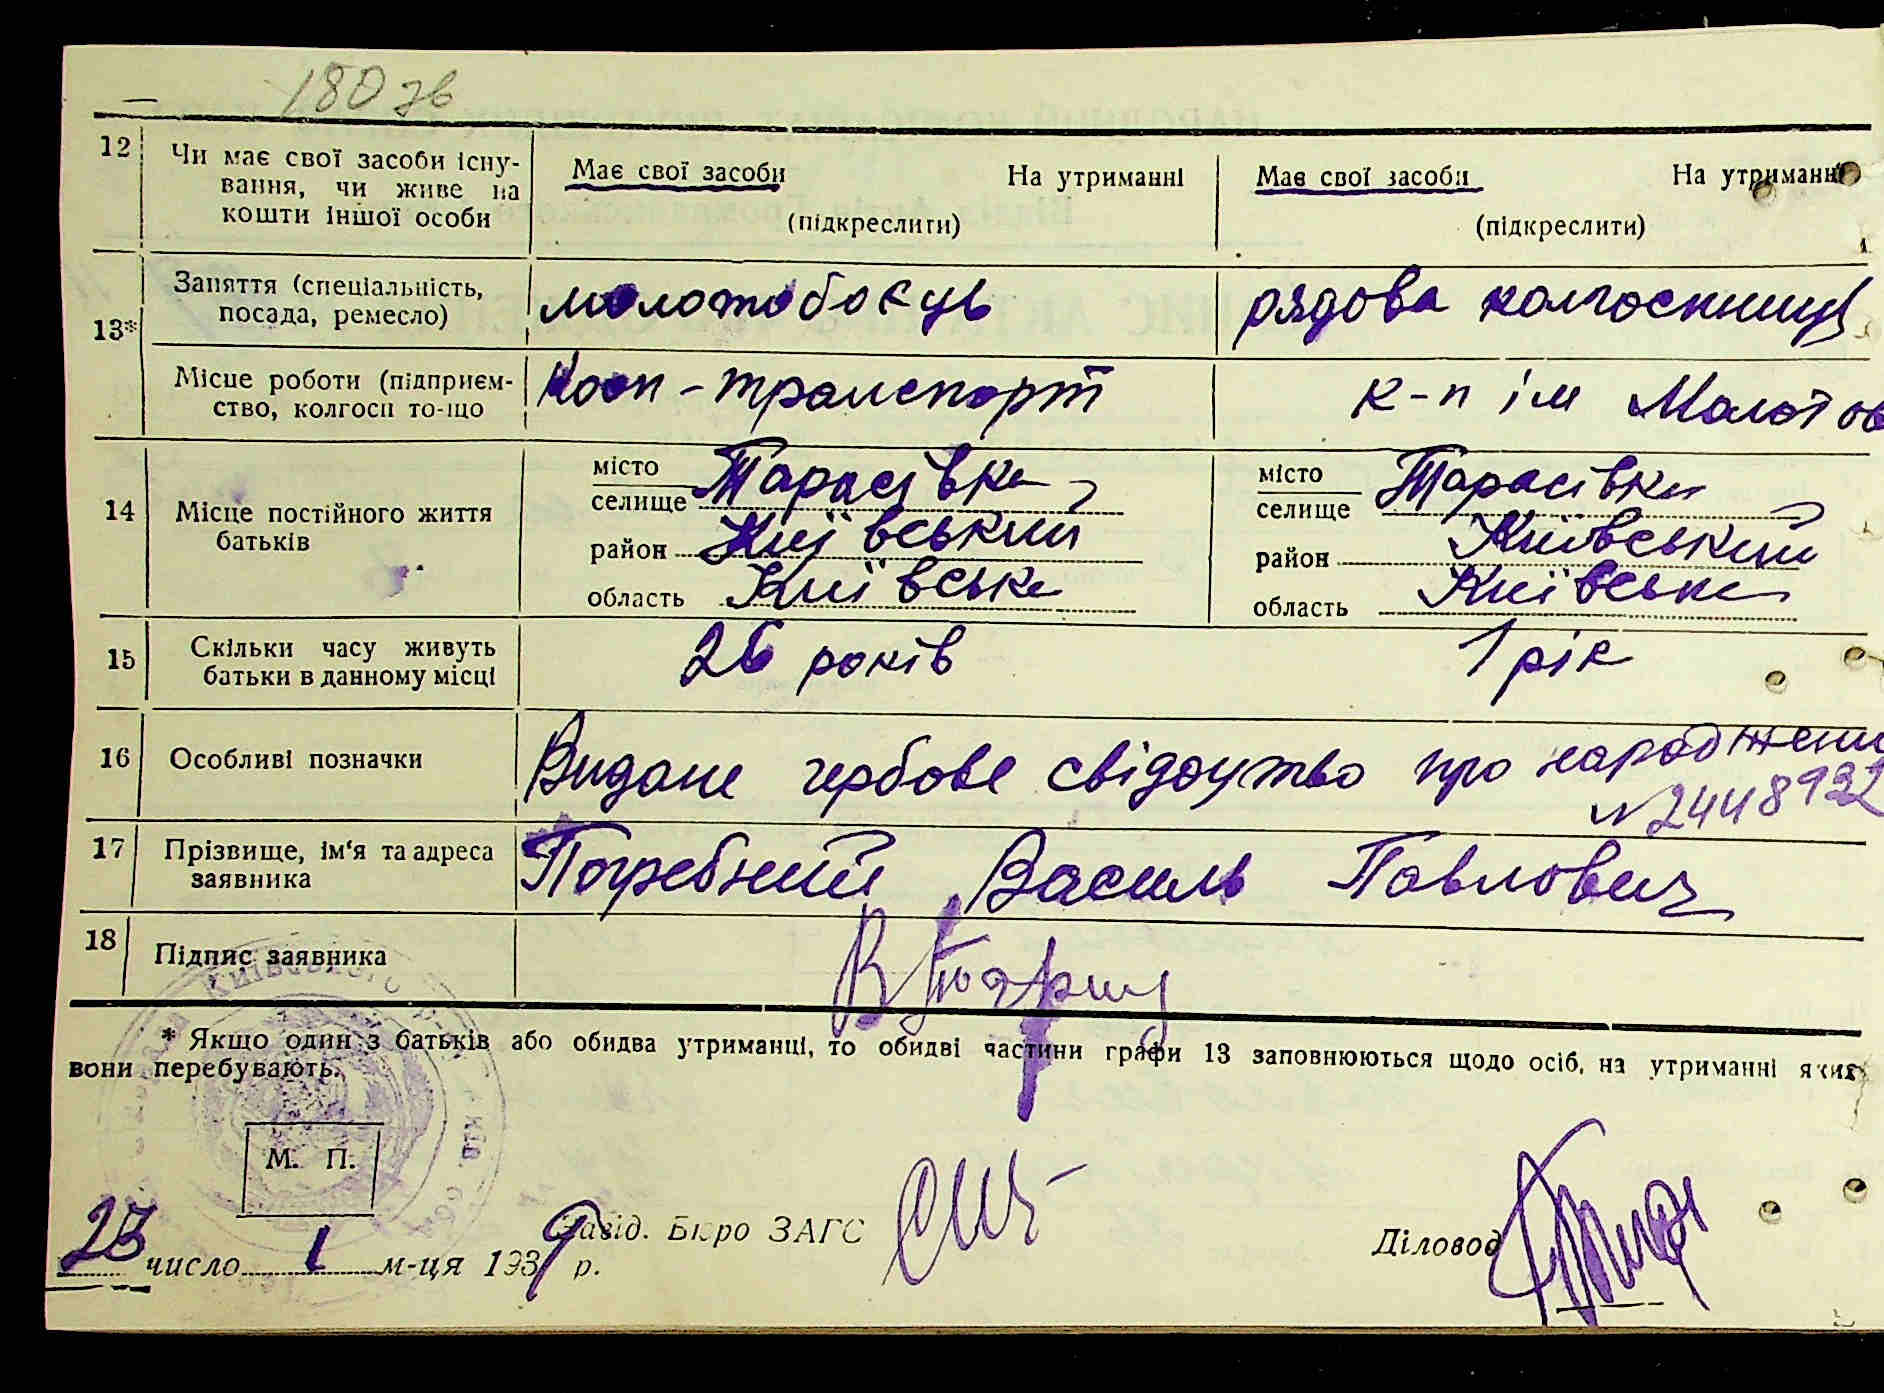 180 зв
12 Чи має свої засоби існу- Має свої засоби На утриманні Має свої засоби На утриманні
вання, чи живе на
кошти іншої особи (підкреслити) (підкреслити)
Заняття (спеціальність, молотобоєць рядова колгоспниця
посада, ремесло)
13*
Місце роботи (підприєм- Кооп-транспорт к-п ім Молотов
ство, колгосп то-що
місто Тарасівка місто Тарасівка
селище селище
14 Місце постійного життя
батьків
район Київський район Київський
область Київська область Київська
15 Скільки часу живуть 26 років 1 рік
батьки в данному місці
16 Особливі позначки Видане гербове свідоцтво про народжени
№2448932
17 Прізвище, ім'я та адреса Погребний Василь Павлович
заявника
18 Підпис заявника
* Якщо один з батьків або обидва утриманці, то обидві частини графи 13 заповнюються щодо осіб, на утриманні яких
вони перебувають.
М. П.
23 число 1 м-ця 1939 р. Завід. Бюро ЗАГС Діловод